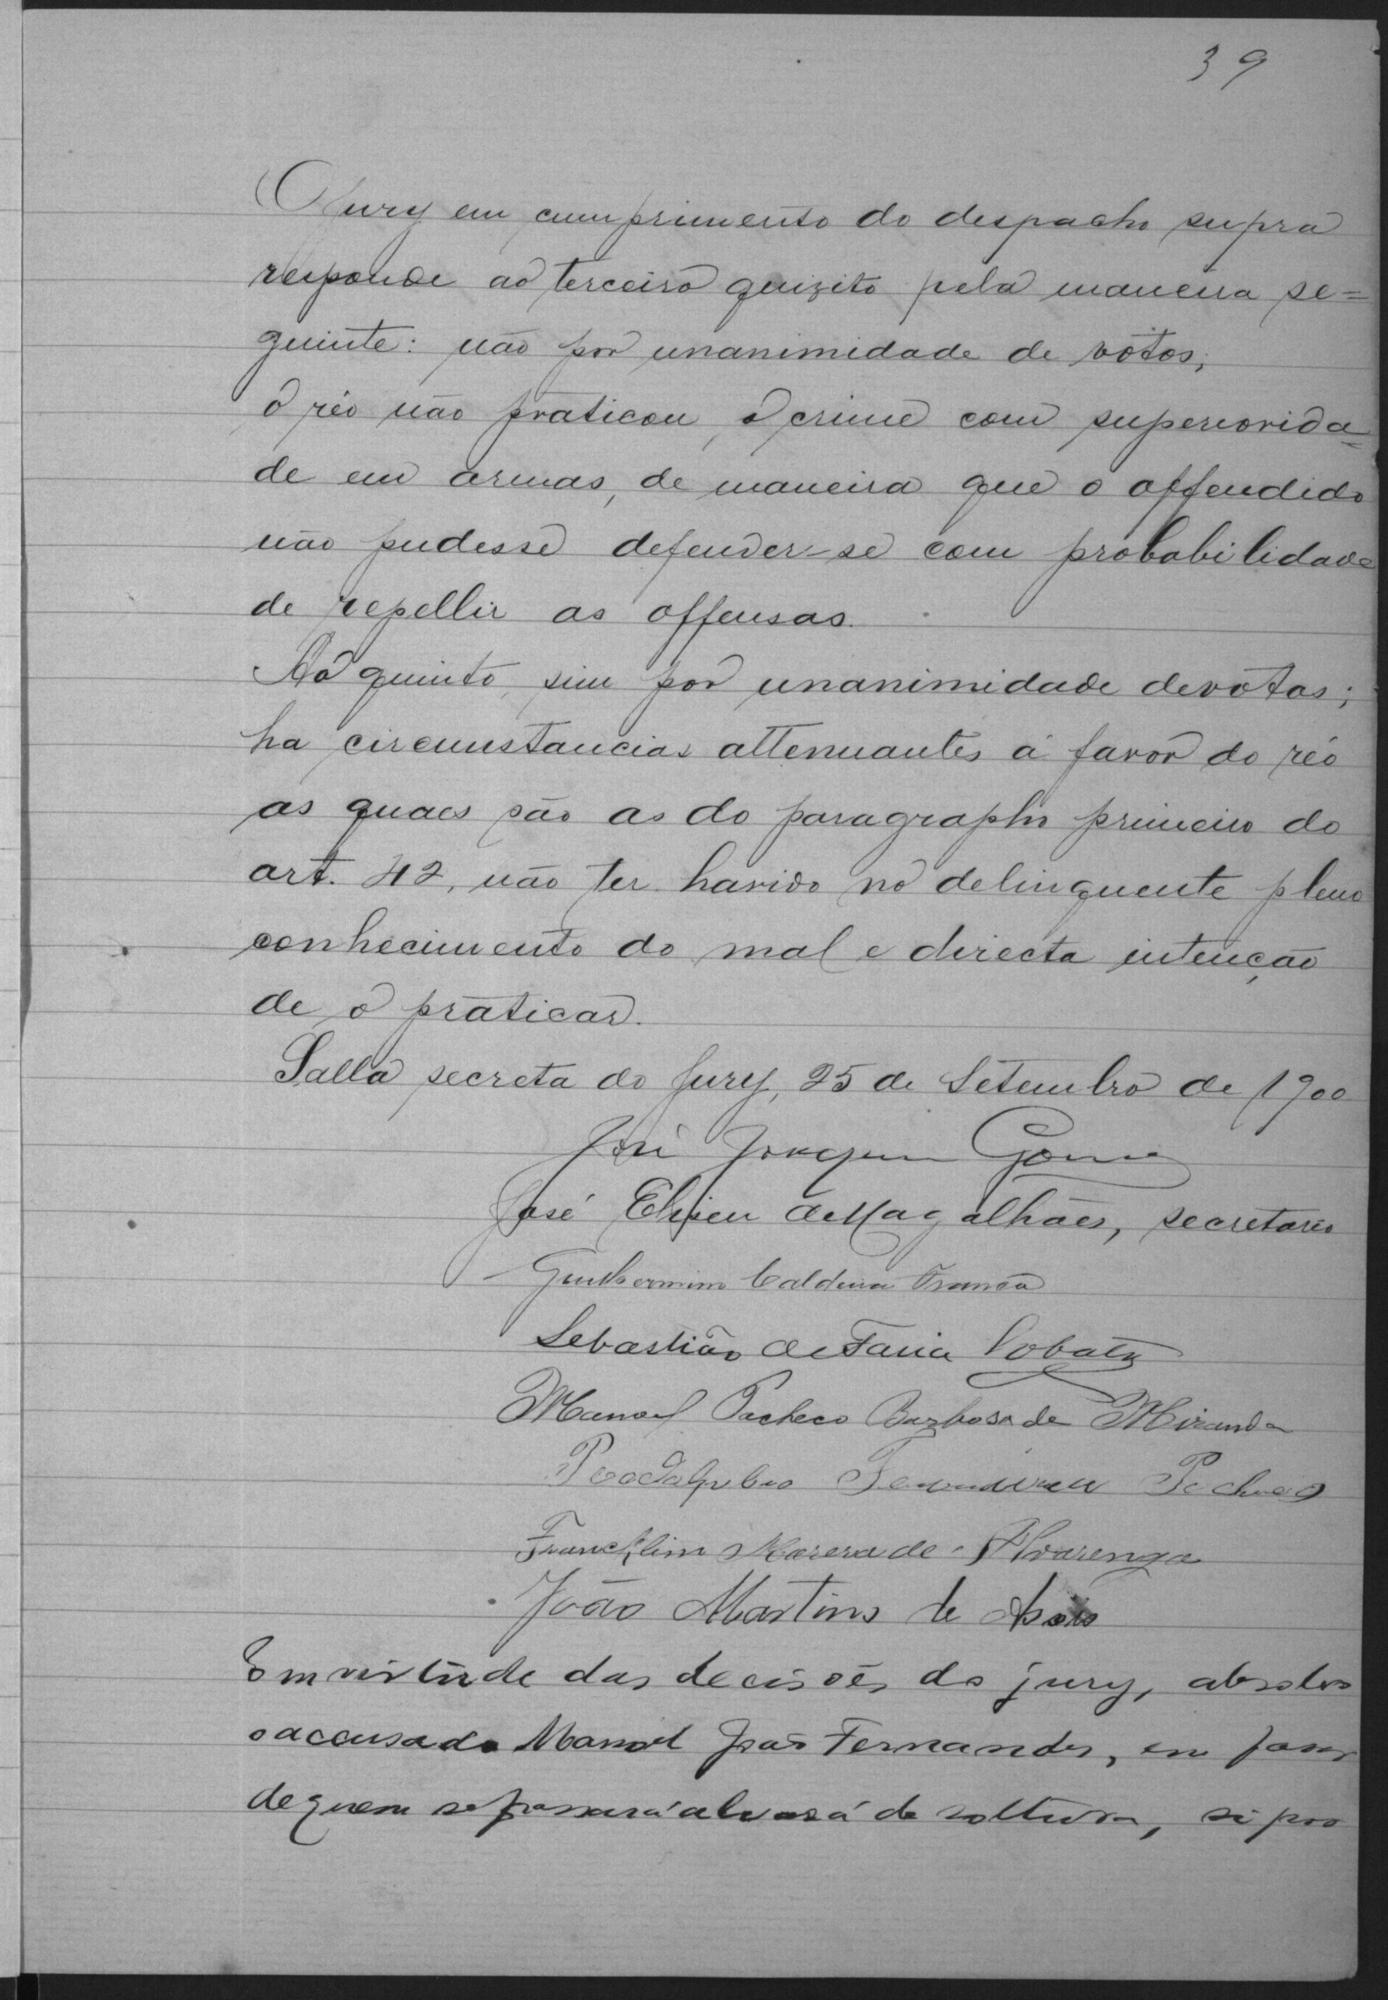 39
O Jury em cumprimento do despacho supra
responde ao terceiro quizito pela maneira se=
guinte: não por unanimidade de votos;
o réo não praticou, o crime com superiorida=
de em armas, de maneira que o offendido
não pudesse defender-se com probabilidade
de repellir as offensas.
Ao quinto, sim por unanimidade de votos;
ha circumstancias attenuantes á favor do réo
as quaes são as do paragrapho primeiro do
art. 42, não ter havido no delinquente pleno
conhecimento do mal e directa intenção
de o praticar.
Salla secreta do Jury, 25 de Setembro de 1900
José Joaquim Gomes
José Eliseu de Magalhães, secretario
Guilhermino Caldeira Franco
Sebastião de Faria Lobato
Manoel Pacheco Barbosa de Miranda
Pacheco
Francklim de Alvarenga
João Martins de Assis
Em virtude das decisões do jury, absolvo
o accusado Manoel João Fernandes, em favor
de quem se passará alvará de soltura, si por